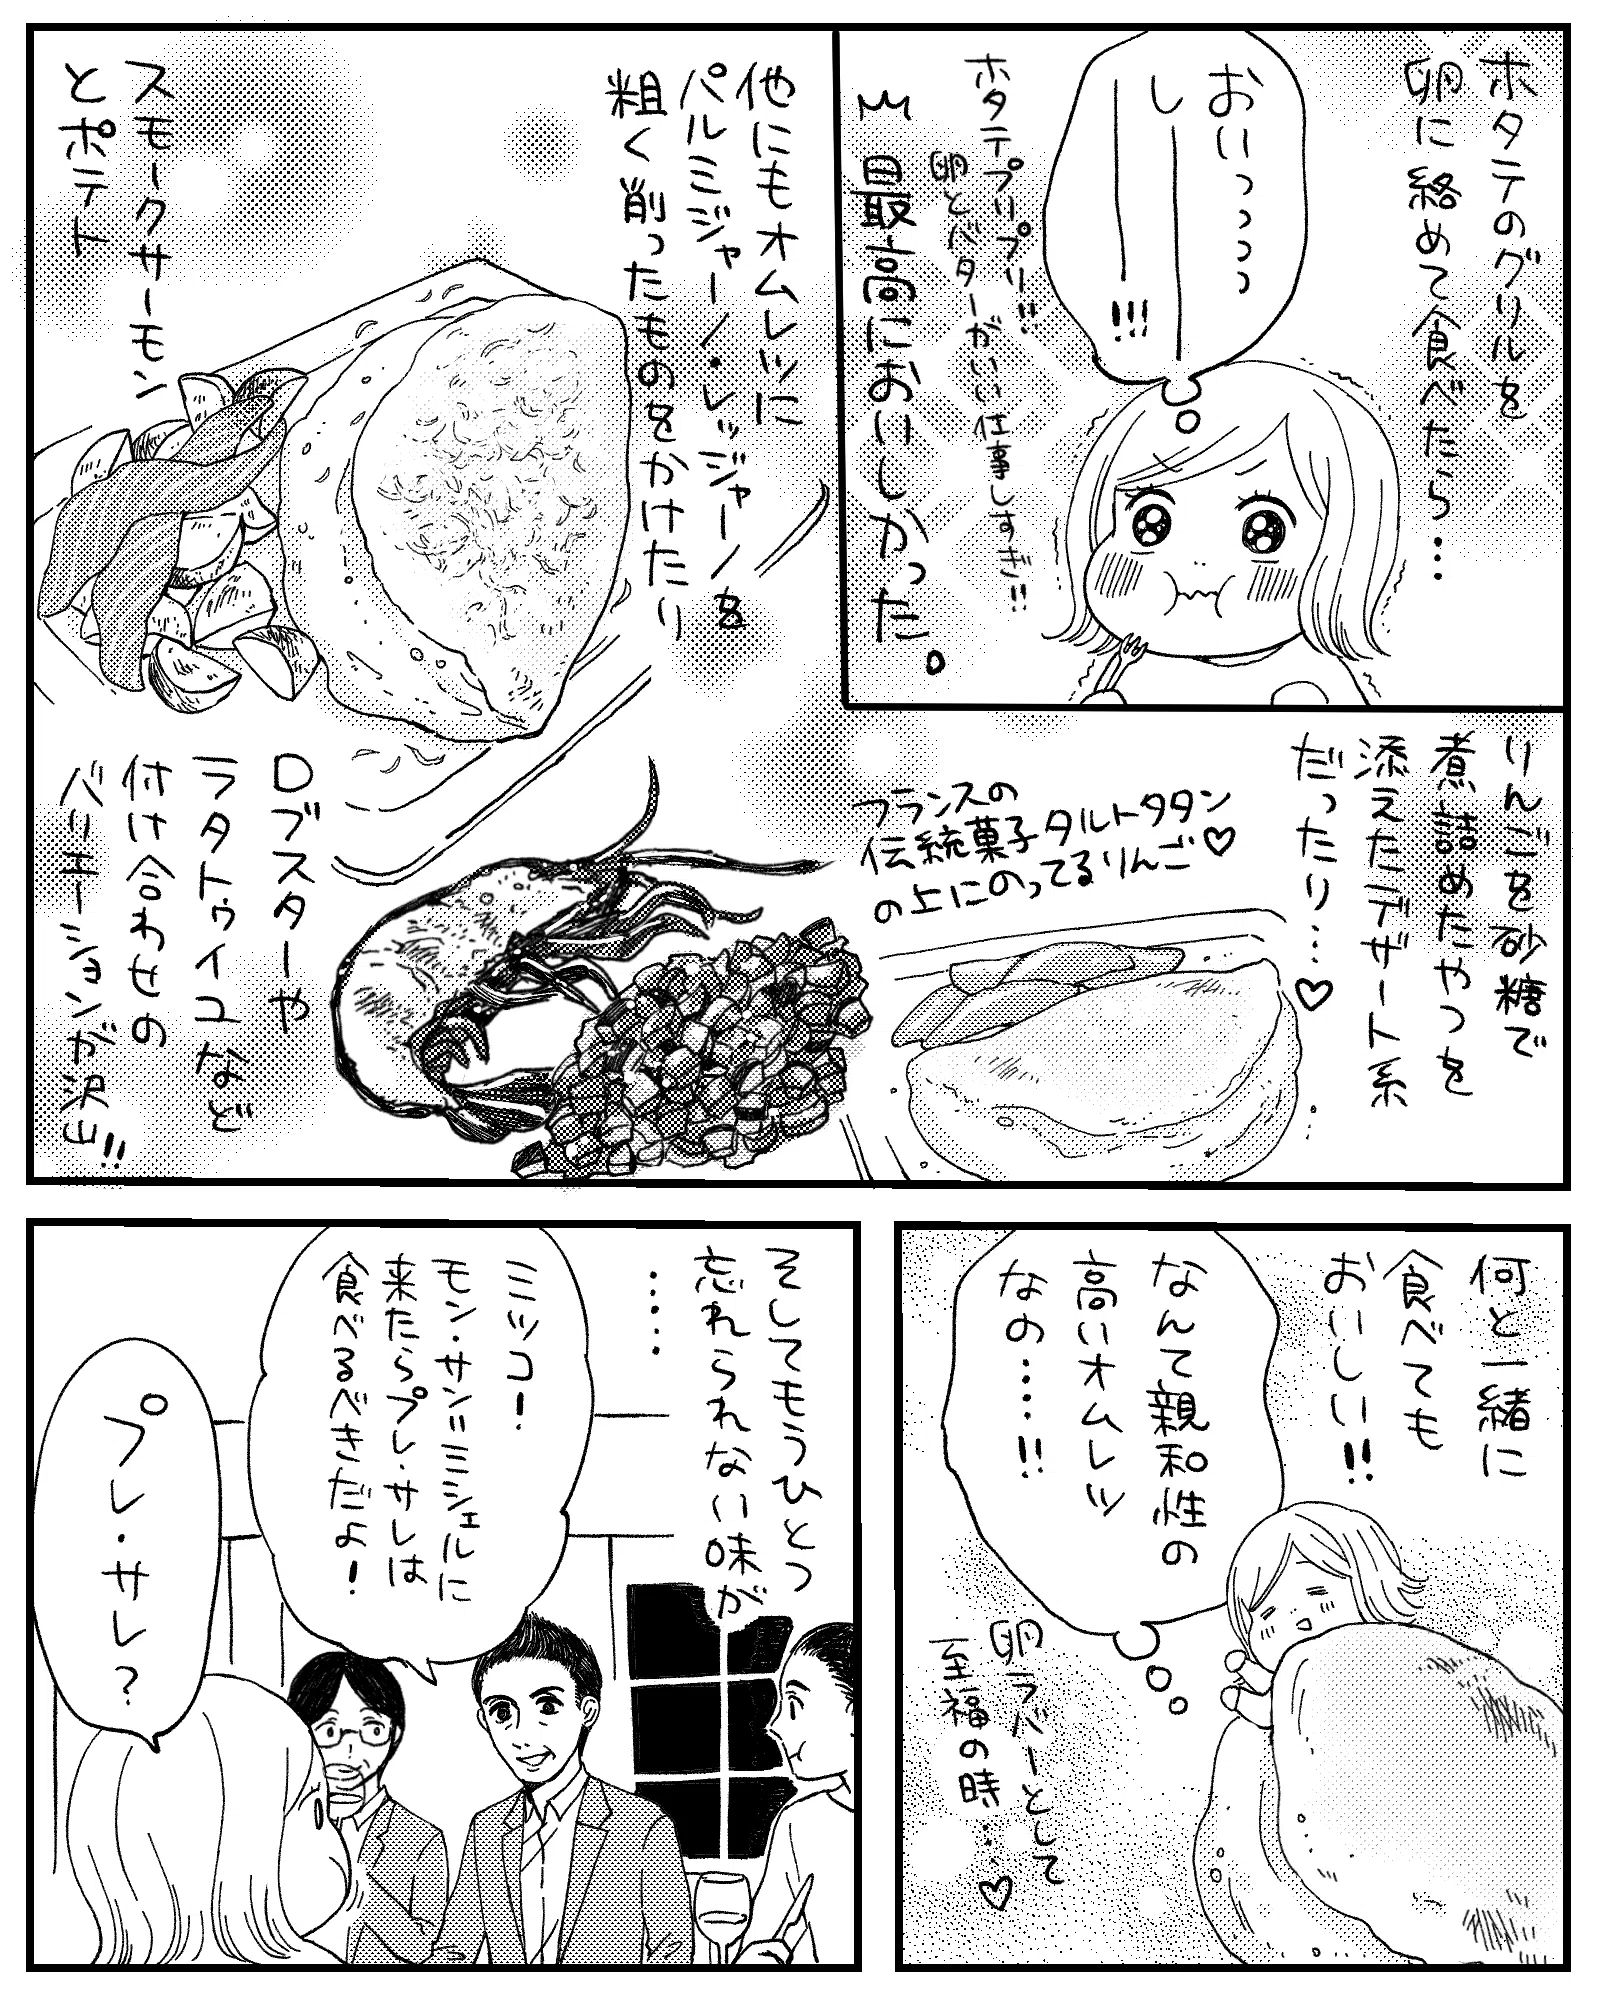 ホタテのグリルを
卵に絡めて食べたら…
おいっっっっ
し｜
｜｜!!!
ホタテプリプリ!!
卵とバターがいい仕事しすぎ!!
最高においしかった。
他にもオムレツに
パルミジャーノ・レッジャーノを
粗く削ったものをかけたり
スモークサーモン
とポテト
りんごを砂糖で
煮詰めたやつを
添えたデザート系
だったり…♡
フランスの
伝統菓子タルトタタン
の上にのってるりんご♡
ロブスターや
ラタトゥイユなど
付け合わせの
バリエーションが沢山!!
何と一緒に
食べても
おいしい!!
なんて親和性の
高いオムレツ
なの…!!
卵ラバーとして
至福の時…♡
そしてもうひとつ
忘れられない味が
‥‥
ミツコ!
モン・サン＝ミシェルに
来たらプレ・サレは
食べるべきだよ!
プレ・サレ?